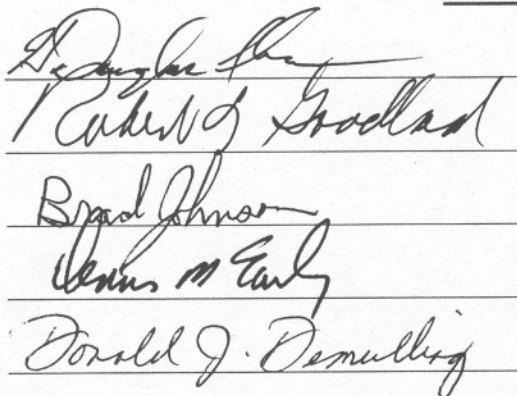 Douglas
Robert J Goodland
Brad Johnson
Dennis M Early
Donald J. Demulling